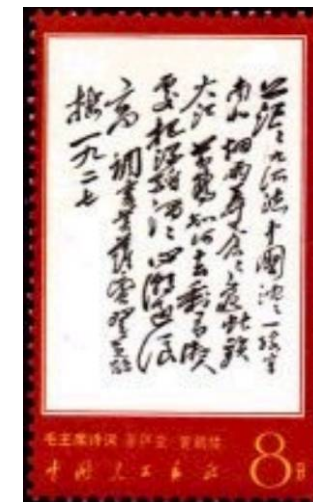 茫茫九派流中國沉沉一線穿
南北烟雨莽苍苍龟蛇锁
大江黄鹤知何去剩有游人
处把酒酹滔滔心潮逐浪
高 調寄菩薩蠻登黄鹤
楼 一九二七
毛主席诗词 菩萨蛮 黄鹤楼
中国人民邮政 8分